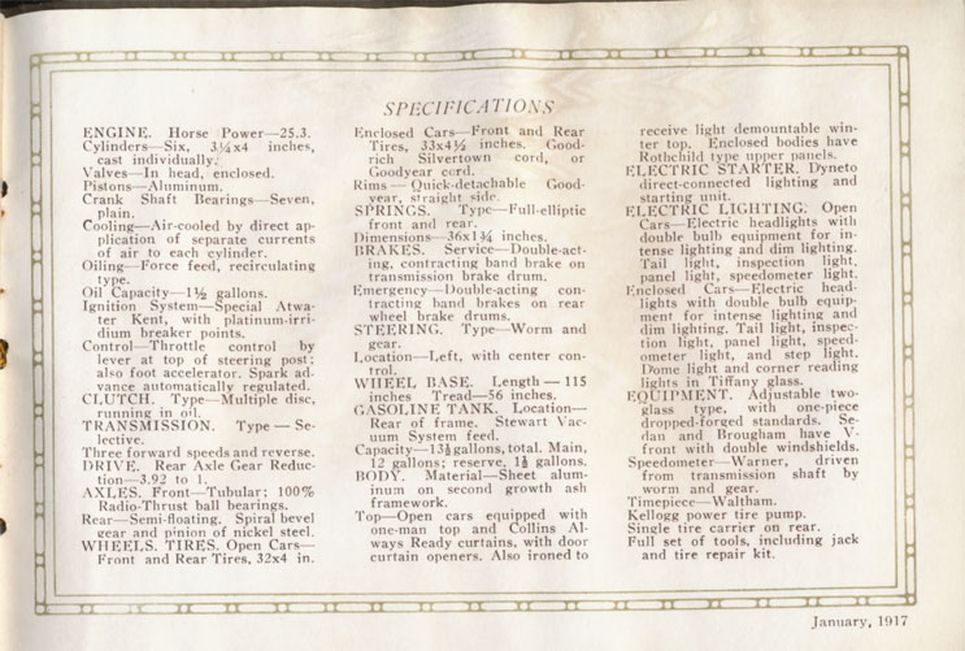 SPECIFICATIONS
ENGINE. Horse Power—25.3.
Cylinders—Six, 3¼x4 inches,
cast individually.
Valves—In head, enclosed.
Pistons—Aluminum.
Crank Shaft Bearings—Seven,
plain.
Cooling—Air-cooled by direct ap-
plication of separate currents
of air to each cylinder.
Oiling—Force feed, recirculating
type.
Oil Capacity—1½ gallons.
Ignition System—Special Atwa-
ter Kent, with platinum-irri-
dium breaker points.
Control—Throttle control by
lever at top of steering post;
also foot accelerator. Spark ad-
vance automatically regulated.
CLUTCH. Type—Multiple disc,
running in oil.
TRANSMISSION. Type — Se-
lective.
Three forward speeds and reverse.
DRIVE. Rear Axle Gear Reduc-
tion—3.92 to 1.
AXLES. Front—Tubular; 100%
Radio-Thrust ball bearings.
Rear—Semi-floating. Spiral bevel
gear and pinion of nickel steel.
WHEELS. TIRES. Open Cars—
Front and Rear Tires, 32x4 in.
Enclosed Cars—Front and Rear
Tires, 33x4½ inches. Good-
rich Silvertown cord, or
Goodyear cord.
Rims — Quick-detachable Good-
year, straight side.
SPRINGS. Type—Full-elliptic
front and rear.
Dimensions—36x1¾ inches.
BRAKES. Service—Double-act-
ing, contracting band brake on
transmission brake drum.
Emergency—Double-acting con-
tracting band brakes on rear
wheel brake drums.
STEERING. Type—Worm and
gear.
Location—Left, with center con-
trol.
WHEEL BASE. Length — 115
inches Tread—56 inches.
GASOLINE TANK. Location—
Rear of frame. Stewart Vac-
uum System feed.
Capacity—13½ gallons, total. Main,
12 gallons; reserve, 1½ gallons.
BODY. Material—Sheet alum-
inum on second growth ash
framework.
Top—Open cars equipped with
one-man top and Collins Al-
ways Ready curtains, with door
curtain openers. Also ironed to
receive light demountable win-
ter top. Enclosed bodies have
Rothchild type upper panels.
ELECTRIC STARTER. Dyneto
direct-connected lighting and
starting unit.
ELECTRIC LIGHTING. Open
Cars—Electric headlights with
double bulb equipment for in-
tense lighting and dim lighting.
Tail light, inspection light,
panel light, speedometer light.
Enclosed Cars—Electric head-
lights with double bulb equip-
ment for intense lighting and
dim lighting. Tail light, inspec-
tion light, panel light, speed-
ometer light, and step light.
Dome light and corner reading
lights in Tiffany glass.
EQUIPMENT. Adjustable two-
glass type, with one-piece
dropped-forged standards. Se-
dan and Brougham have V-
front with double windshields.
Speedometer—Warner, driven
from transmission shaft by
worm and gear.
Timepiece—Waltham.
Kellogg power tire pump.
Single tire carrier on rear.
Full set of tools, including jack
and tire repair kit.
January, 1917